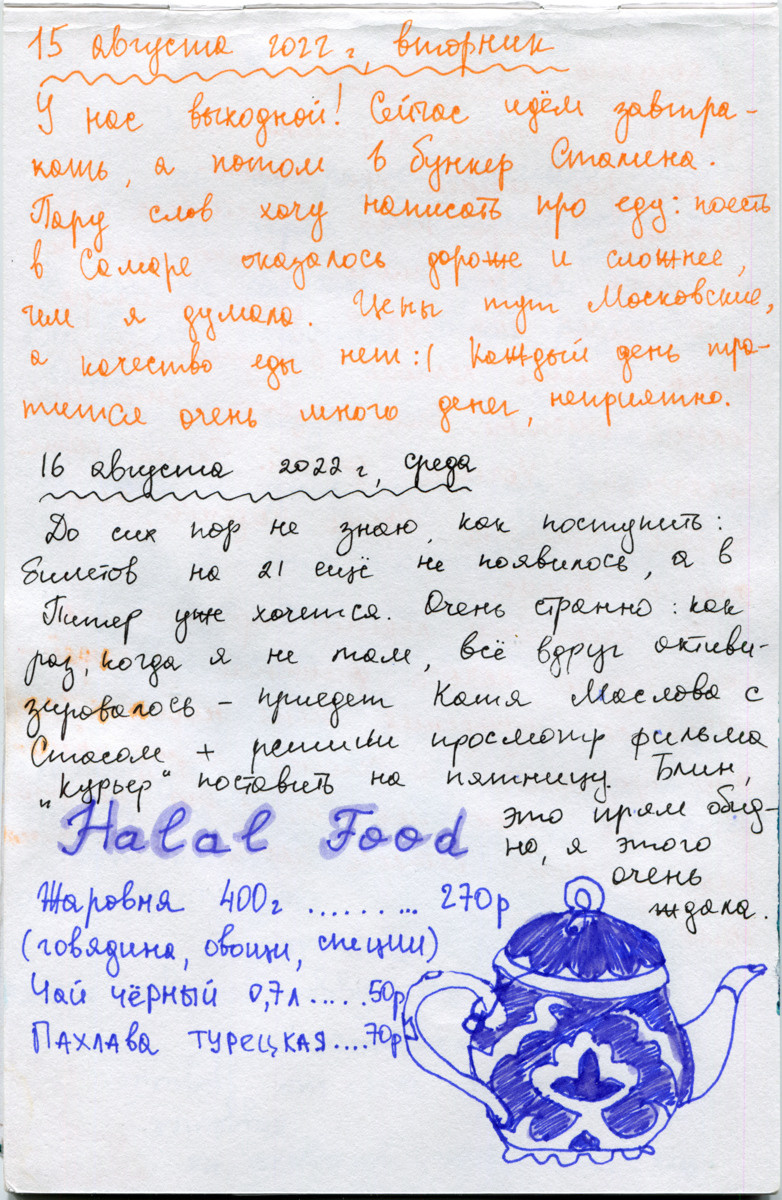 15 августа 2022 г, вторник
У нас выходной! Сейчас идём завтра-
кать, а потом в бункер Сталина.
Пару слов хочу написать про еду: поесть
в Самаре оказалось дороже и сложнее,
чем я думала. Цены тут Московские,
а качество еды нет :( Каждый день тра-
тится очень много денег, неприятно.
16 августа 2022 г, среда
До сих пор не знаю, как поступить:
билетов на 21 ещё не появилось, а в
Питер уже хочется. Очень странно: как
раз, когда я не там, всё вдруг активи-
зировалось – приедет Катя Маслова с
Стасом + решили просмотр фильма
„Курьер" поставить на пятницу. Блин,
это прям обид-
но, я этого
очень
ждала.
Halal Food
Жаровня 400г ......... 270р
(говядина, овощи, специи)
Чай чёрный 0,7л.....50р
Пахлава турецкая....70р